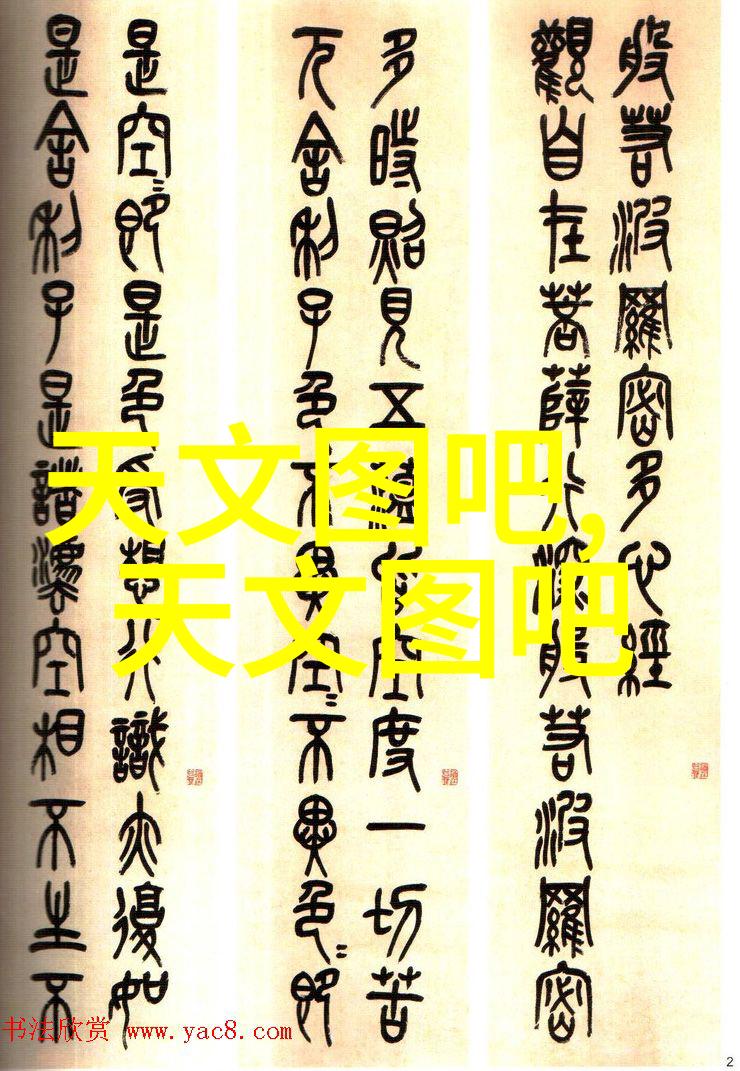 般若波羅密多心經
觀自在菩薩行深般若波羅密
多時照見五蘊皆空度一切苦
厄舍利子色不異空〻不異色〻即
是空〻即是色受想行識亦復如
是舍利子是諸法空相不生不
天文图吧,
天文图吧
书法欣赏 www.yac8.com
2